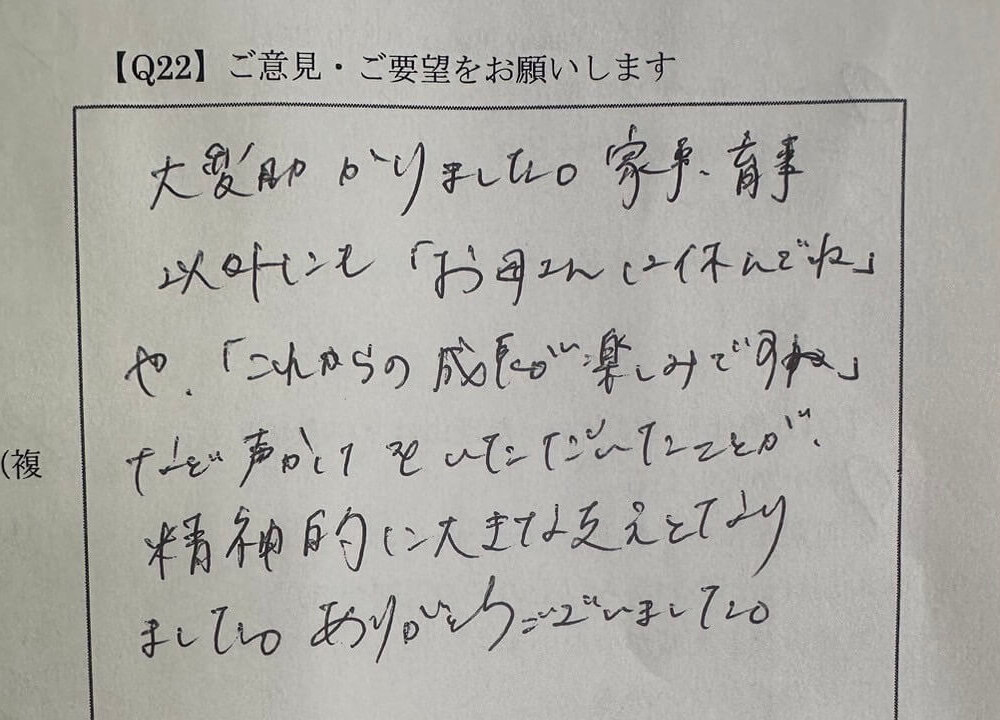 【Q22】ご意見・ご要望をお願いします
大変助かりました。家事、育事
以外にも「お母さんは休んでね」
や、「これからの成長が楽しみですね」
など声かけをいただいたことが、
(複
精神的に大きな支えとなり
ました。ありがとうございました。